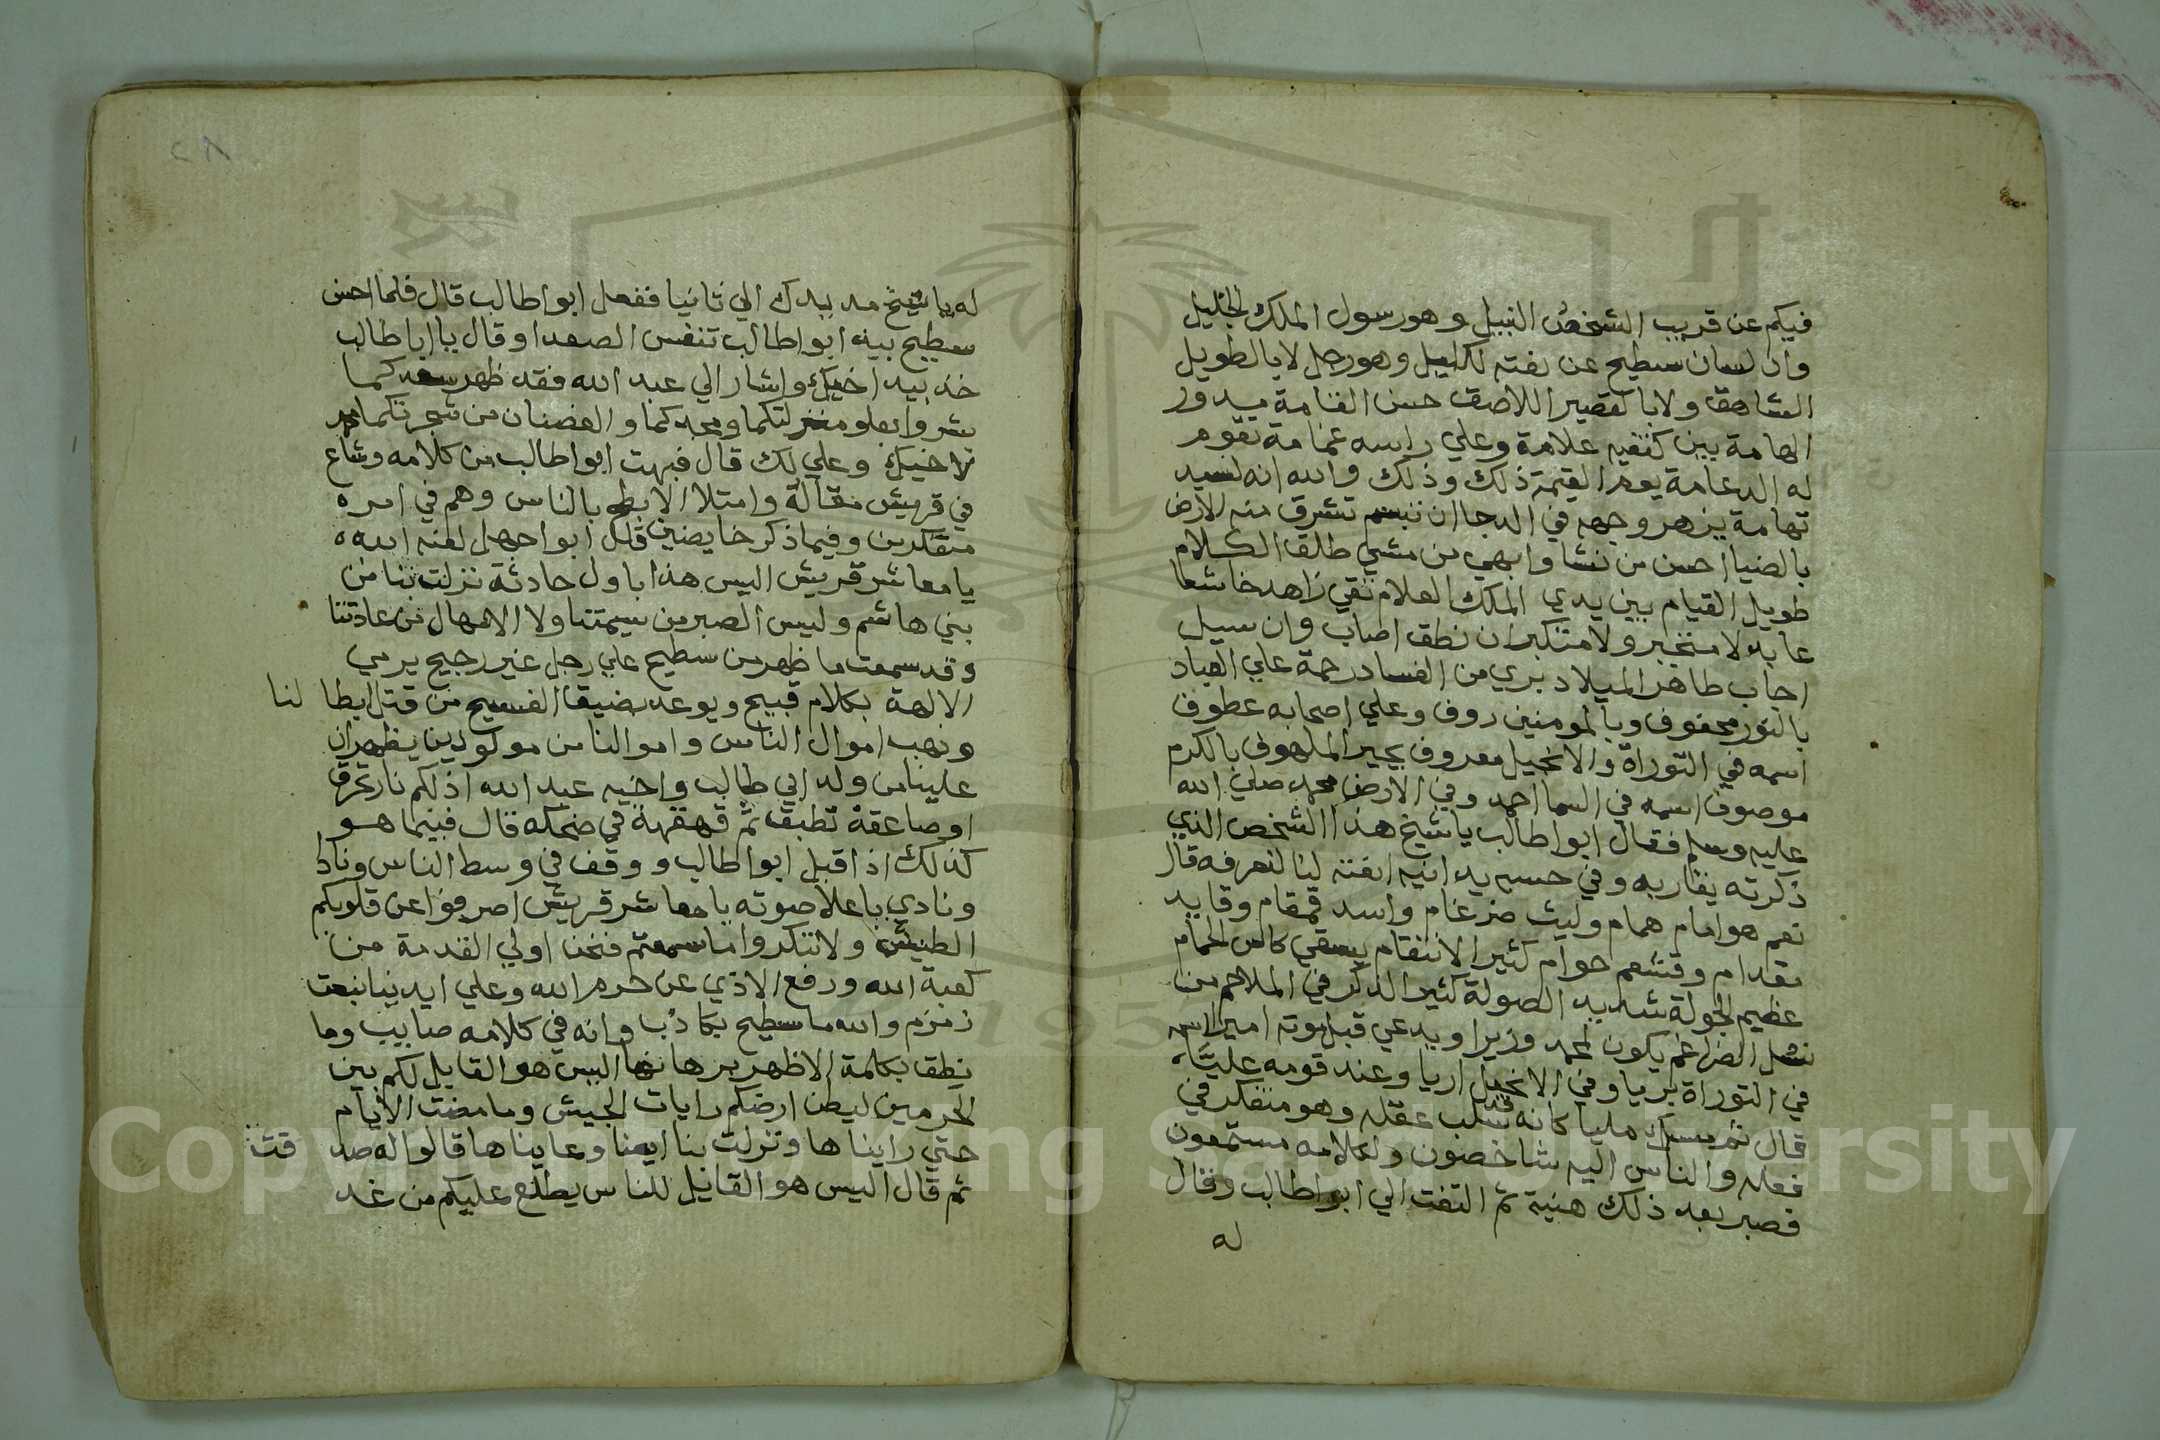 فيكم عن قريب الشخص النبيل وهو رسول الملك الجليل
وان لسان سطيح عن نعته لكليل وهو رجل لا بالطويل
الشاهق ولا بالقصير اللاصق حسن القامة مدور
الهامة بين كتفيه علامة وعلي راسه عمامة تقوم
له الدعامة يوم القيمة ذلك وذلك والله انه لسيد
تهامة يزهر وجهه في الدجا ان تبسم تشرق منه الارض
بالضيا احسن من نشا وابهي من مشي طلق الكلام
طويل القيام بين يدي الملك العلام نقي زاهد خاشعا
عابد لا متجبر ولا متكبر ان نطق اصاب وان سيل
اجاب طاهر الميلاد بري من الفساد رحمة علي العباد
بالنور محفوف وبالمومنين روف وعلي اصحابه عطوف
اسمه في التوراة والانجيل معروف يجير الملهوف بالكرم
موصوف اسمه في السما احمد وفي الارض محمد صلي الله
عليه وسلم فقال ابو اطالب يا شيخ هذا الشخص الذي
ذكرته يقاربه وفي حسبه يدانيه انعته لنا لنعرفه قال
نعم هو امام همام وليث ضرغام واسد قمقام وقايد
مقدام وقشعم حوام كثير الانتقام يسقي كاس الحمام
عظيم الجولة شديد الصولة كثير الذكر في الملاحم من
نسل الضراغم يكون لمحمد وزيرا ويدعي قبل موته اميرا اسمه
في التوراة بريا وفي الانجيل اريا وعند قومه عليا
قال ثم مسك مليا كانه قد سلب عقله وهو متفكر في
فعله والناس اليه شاخصون ولكلامه مستمعون
فصبر بعد ذلك هنية ثم التفت الي ابو اطالب وقال
له
له يا شيخ مد يدك الي ثانيا ففعل ابو اطالب قال فلما احس
سطيح بيد ابو اطالب تنفس الصعدا وقال يا ابا طالب
خذ بيد اخيك واشار الي عبد الله فقد ظهر سعدكما
بشروا بعلو منزلتكما ومجدكما والغصنان من شجرتكما محمد
لاخيك وعلي لك قال فبهت ابو اطالب من كلامه وشاع
في قريش مقالة وامتلا الابطح بالناس وهم في امره
متفكرين وفيما ذكر خايضين فقال ابو اجهل لعنه الله
يا معاشر قريش اليس هذا باول حادثة نزلت بنا من
بني هاشم وليس الصبر من شيمتنا ولا الامهال من عادتنا
وقد سمعت ما ظهر من سطيح علي رجل غير رجيح يرمي
الالهة بكلام قبيح ويوعد بضيق الفسيح من قتل ابطا لنا
ونهب اموال الناس واموالنا من مولودين يظهران
علينا من ولد ابي طالب واخيه عبد الله اذلكم نار تحرق
او صاعقة تطبق ثم قهقهة في ضحكه قال فبينما هو
كذلك اذ اقبل ابو اطالب ووقف في وسط الناس وناد
ونادي باعلا صوته يا معاشر قريش اصرفوا عن قلوبكم
الطيش ولا تنكروا ما سمعتم فنحن اولي القدمة من
كعبة الله ورفع الاذي عن حرم الله وعلي ايدينا نبعت
زمزم والله ما سطيح بكاذب وانه في كلامه صايب وما
نطق بكلمة الا ظهر برهانها اليس هو القايل لكم بين
الحرمين ليطن ارضكم رايات الجيش وما مضت الايام
حتي رايناها ونزلت بنا ايضا وعايناها قالوا له صد قت
ثم قال اليس هو القايل للناس يطلع عليكم من غد
٢٨
Copyright © King Saud University